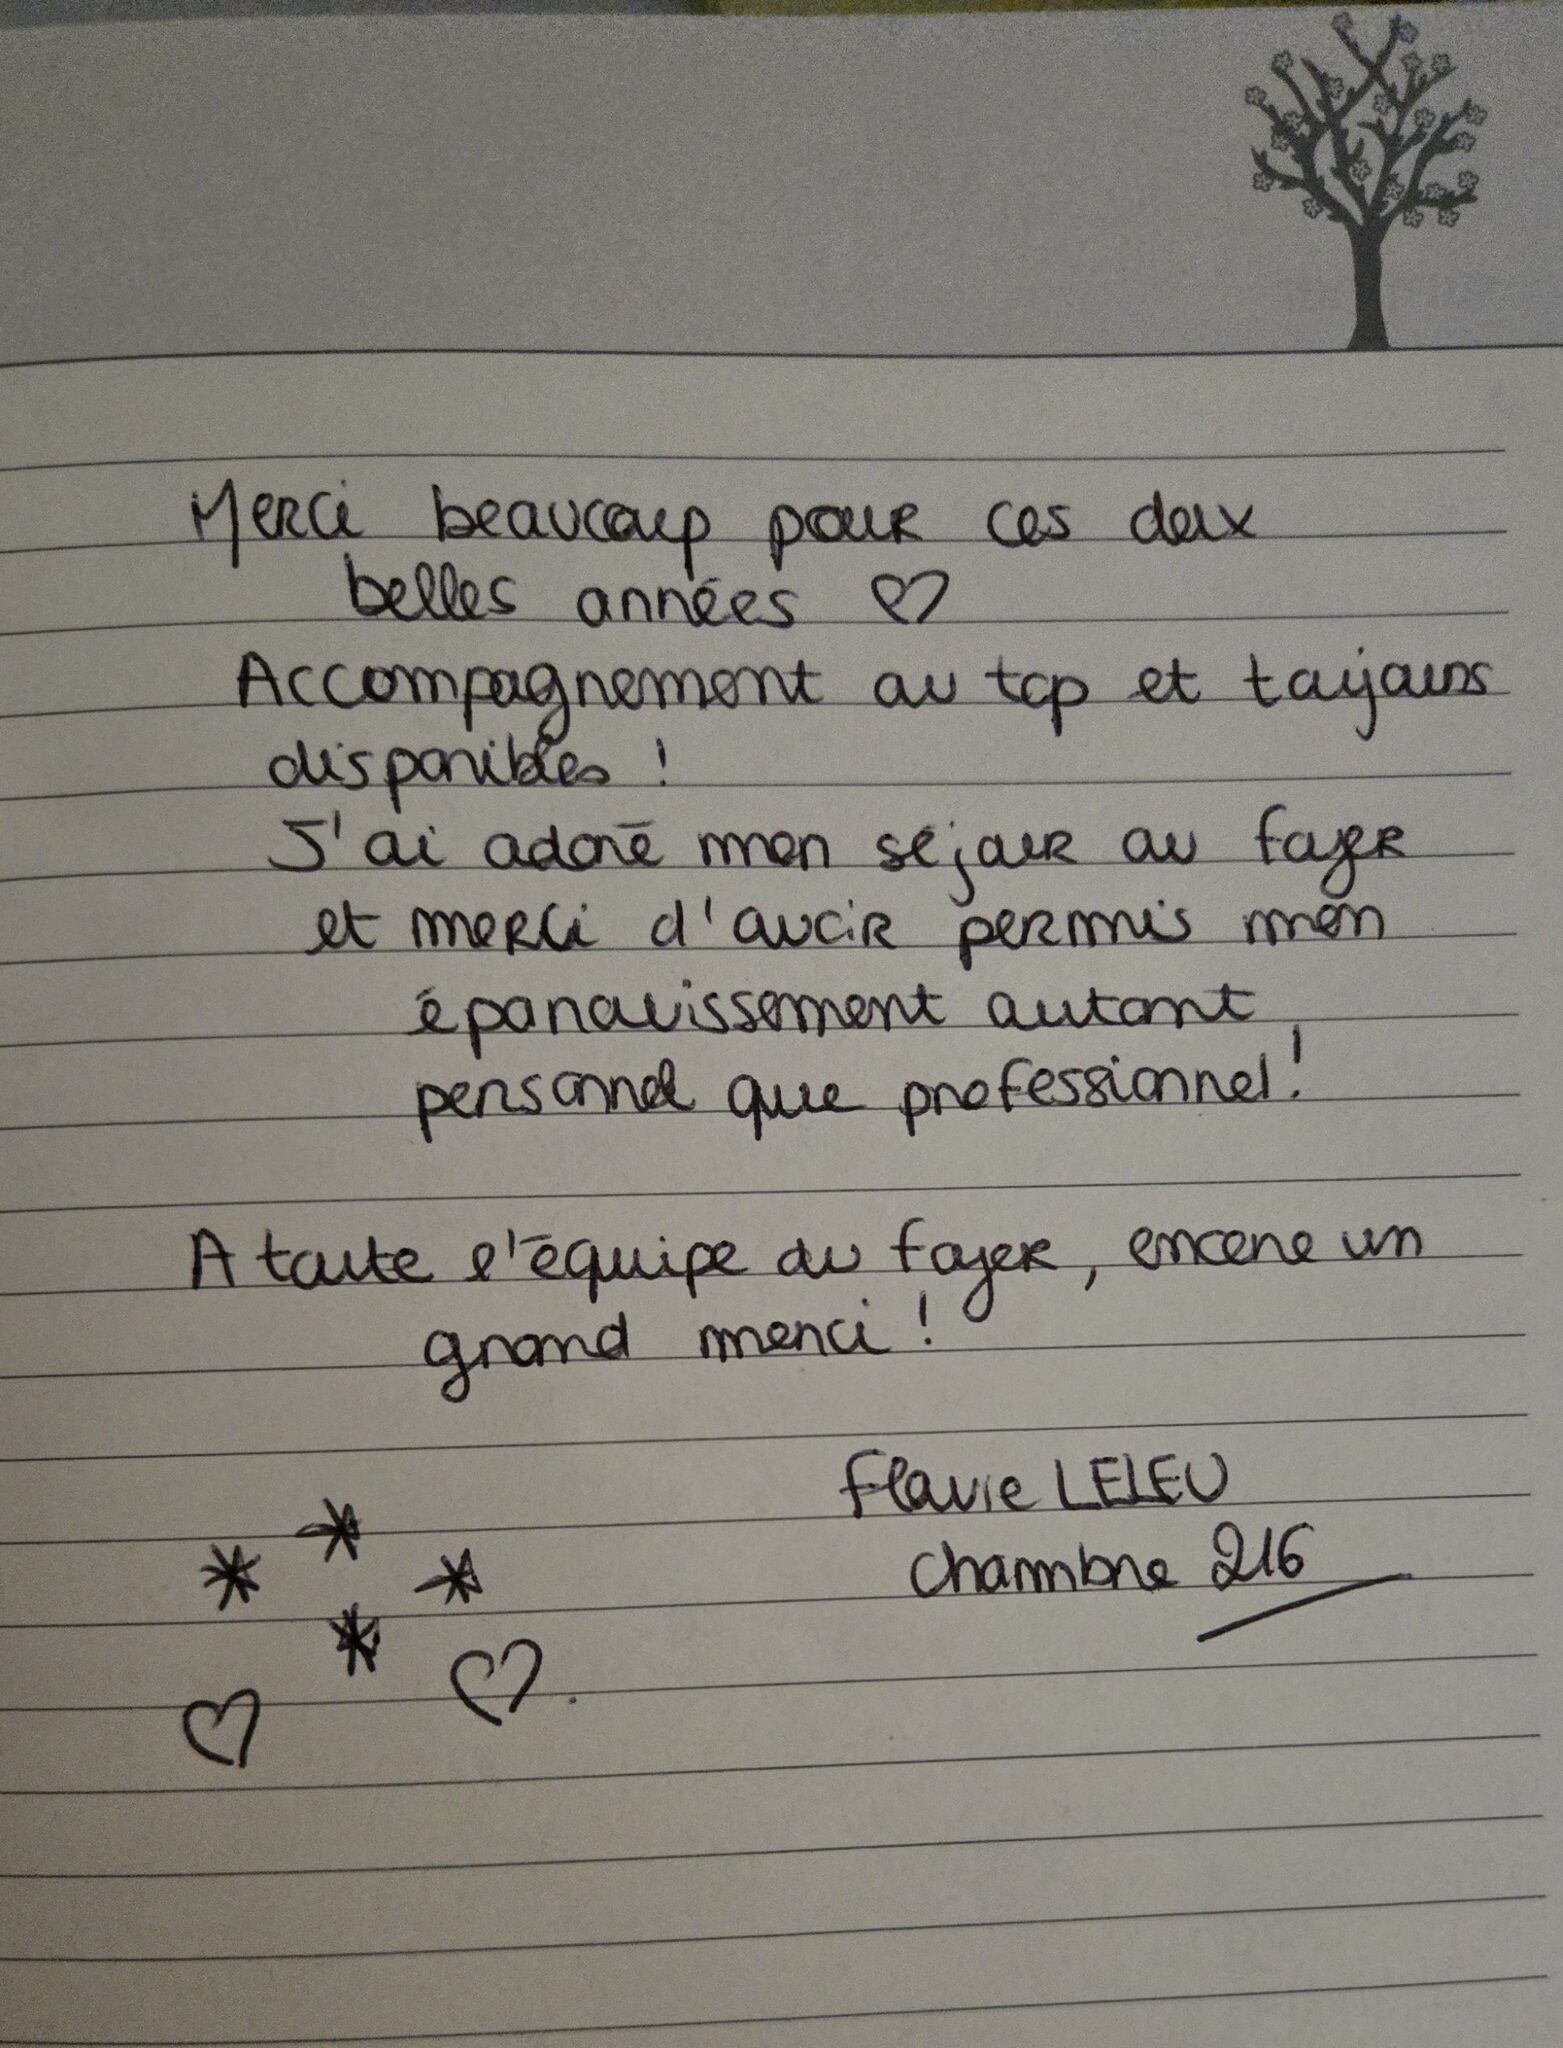 Merci beaucoup pour ces deux
belles années ♡
Accompagnement au top et toujours
disponibles !
J'ai adoré mon séjour au foyer
et merci d'avoir permis mon
épanouissement autant
personnel que professionnel !
A toute l'équipe du foyer, encore un
grand merci !
Flavie LELEU
chambre 216